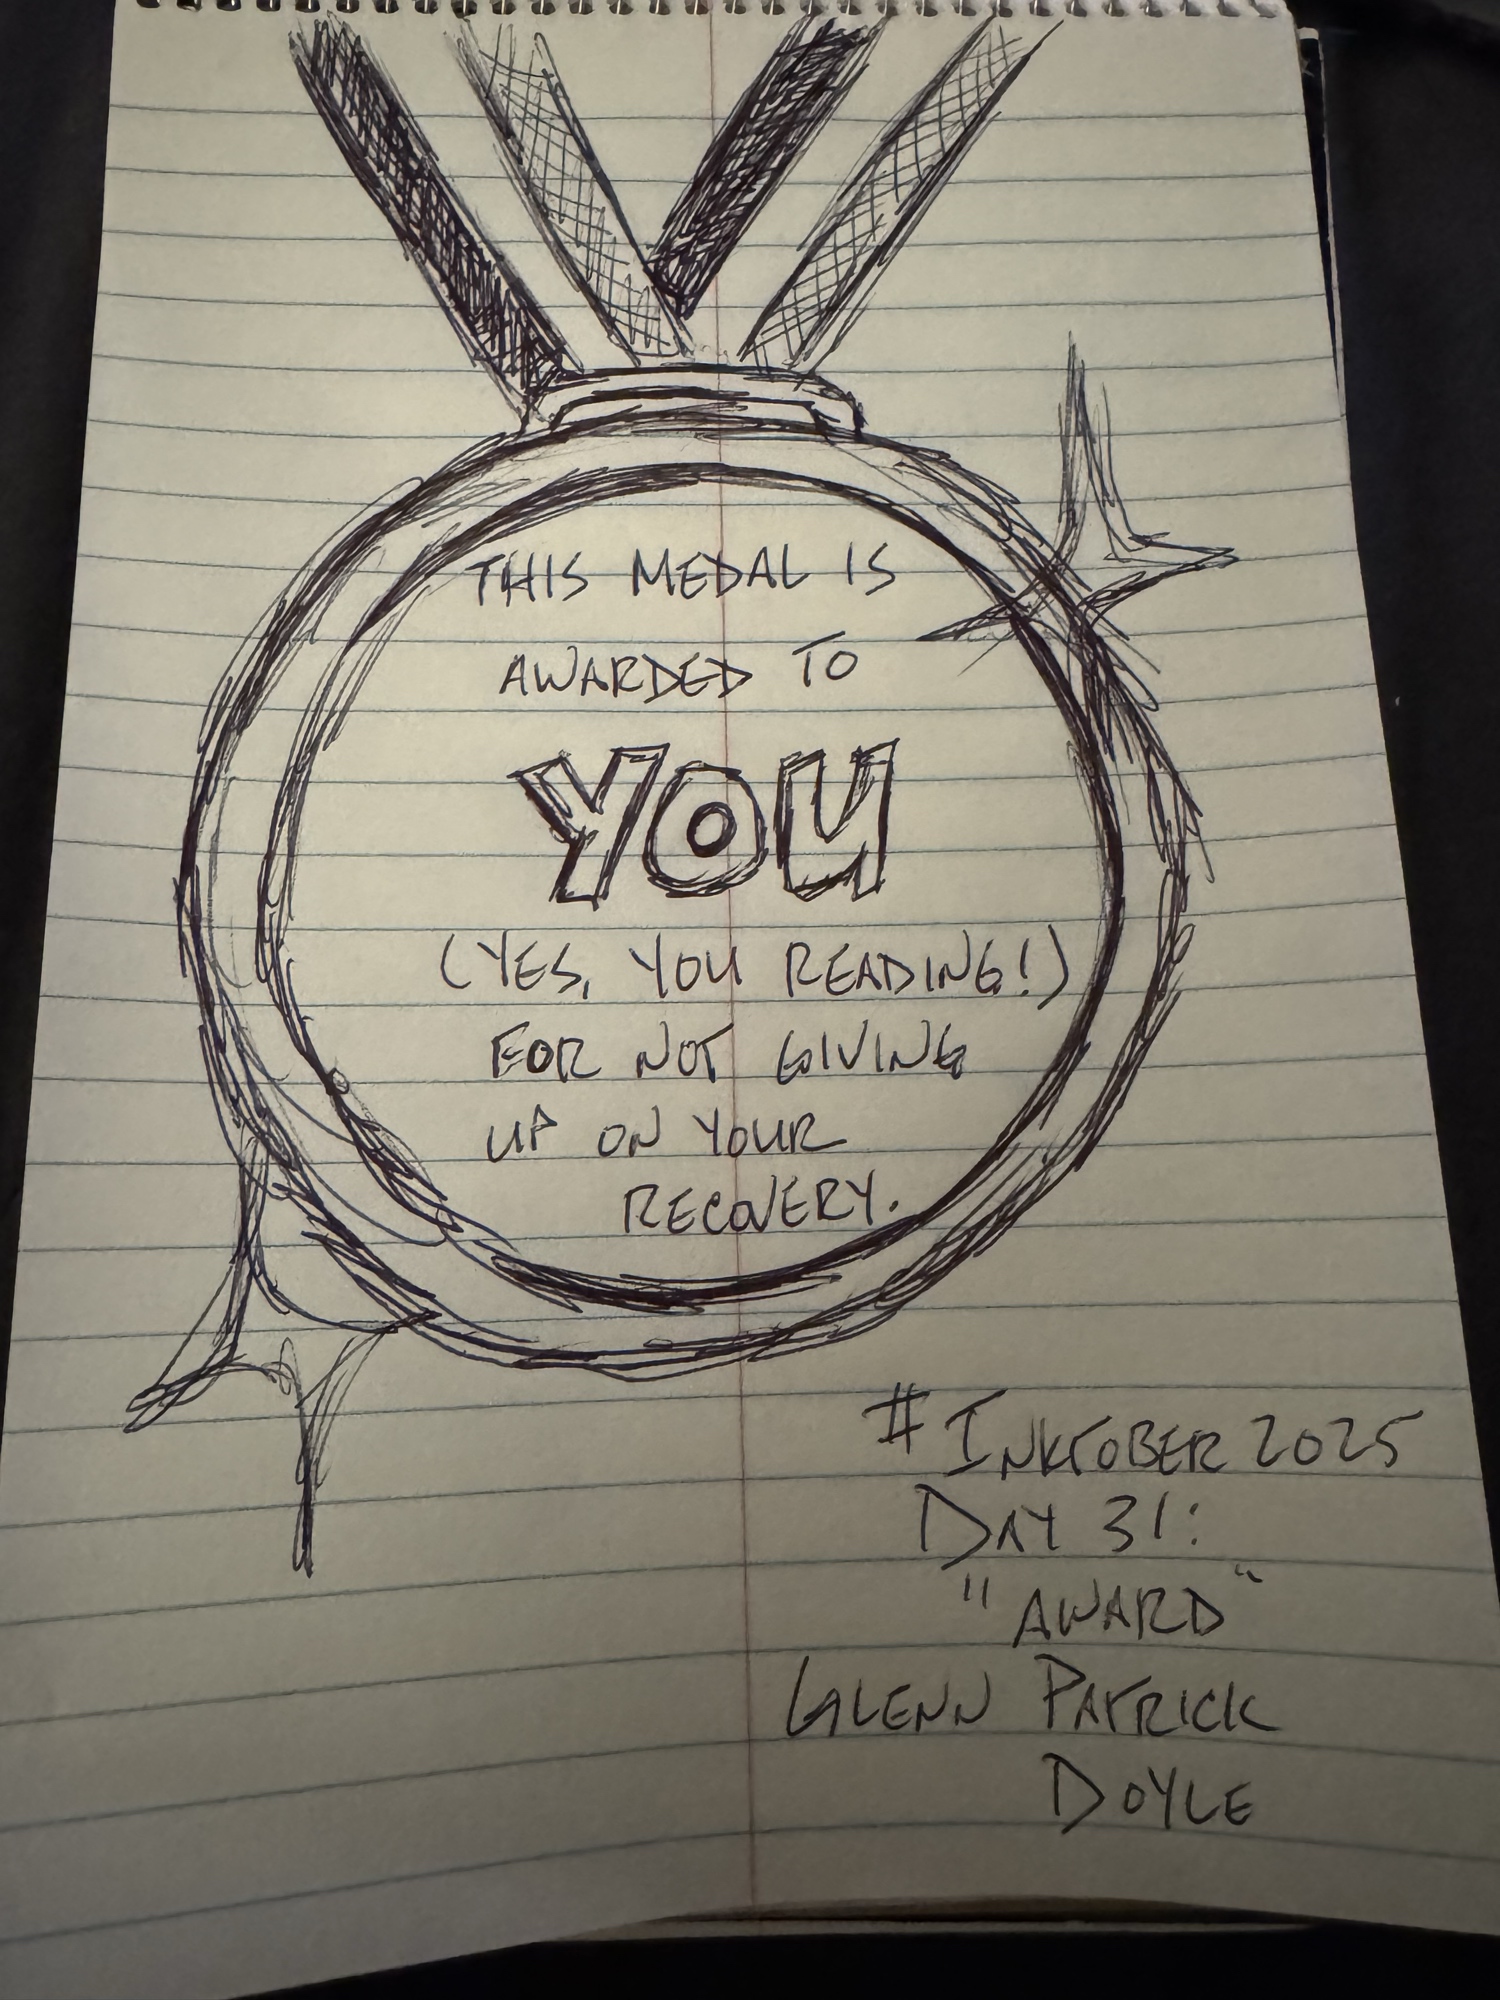 THIS MEDAL IS
AWARDED TO
YOU
(YES, YOU READING!)
FOR NOT GIVING
UP ON YOUR
RECOVERY.
#INKTOBER 2025
DAY 31:
"AWARD"
GLENN PATRICK
DOYLE